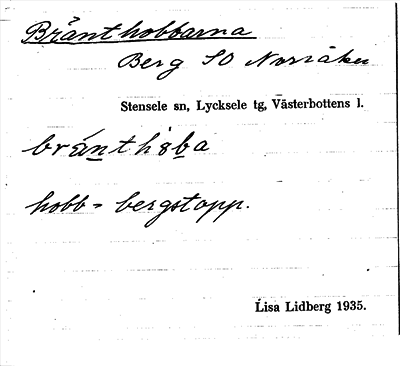 Bränthobbarna
Berg SO Norråker
Stensele sn, Lycksele tg, Västerbottens l.
bränthoba
hobb = bergstopp.
Lisa Lidberg 1935.